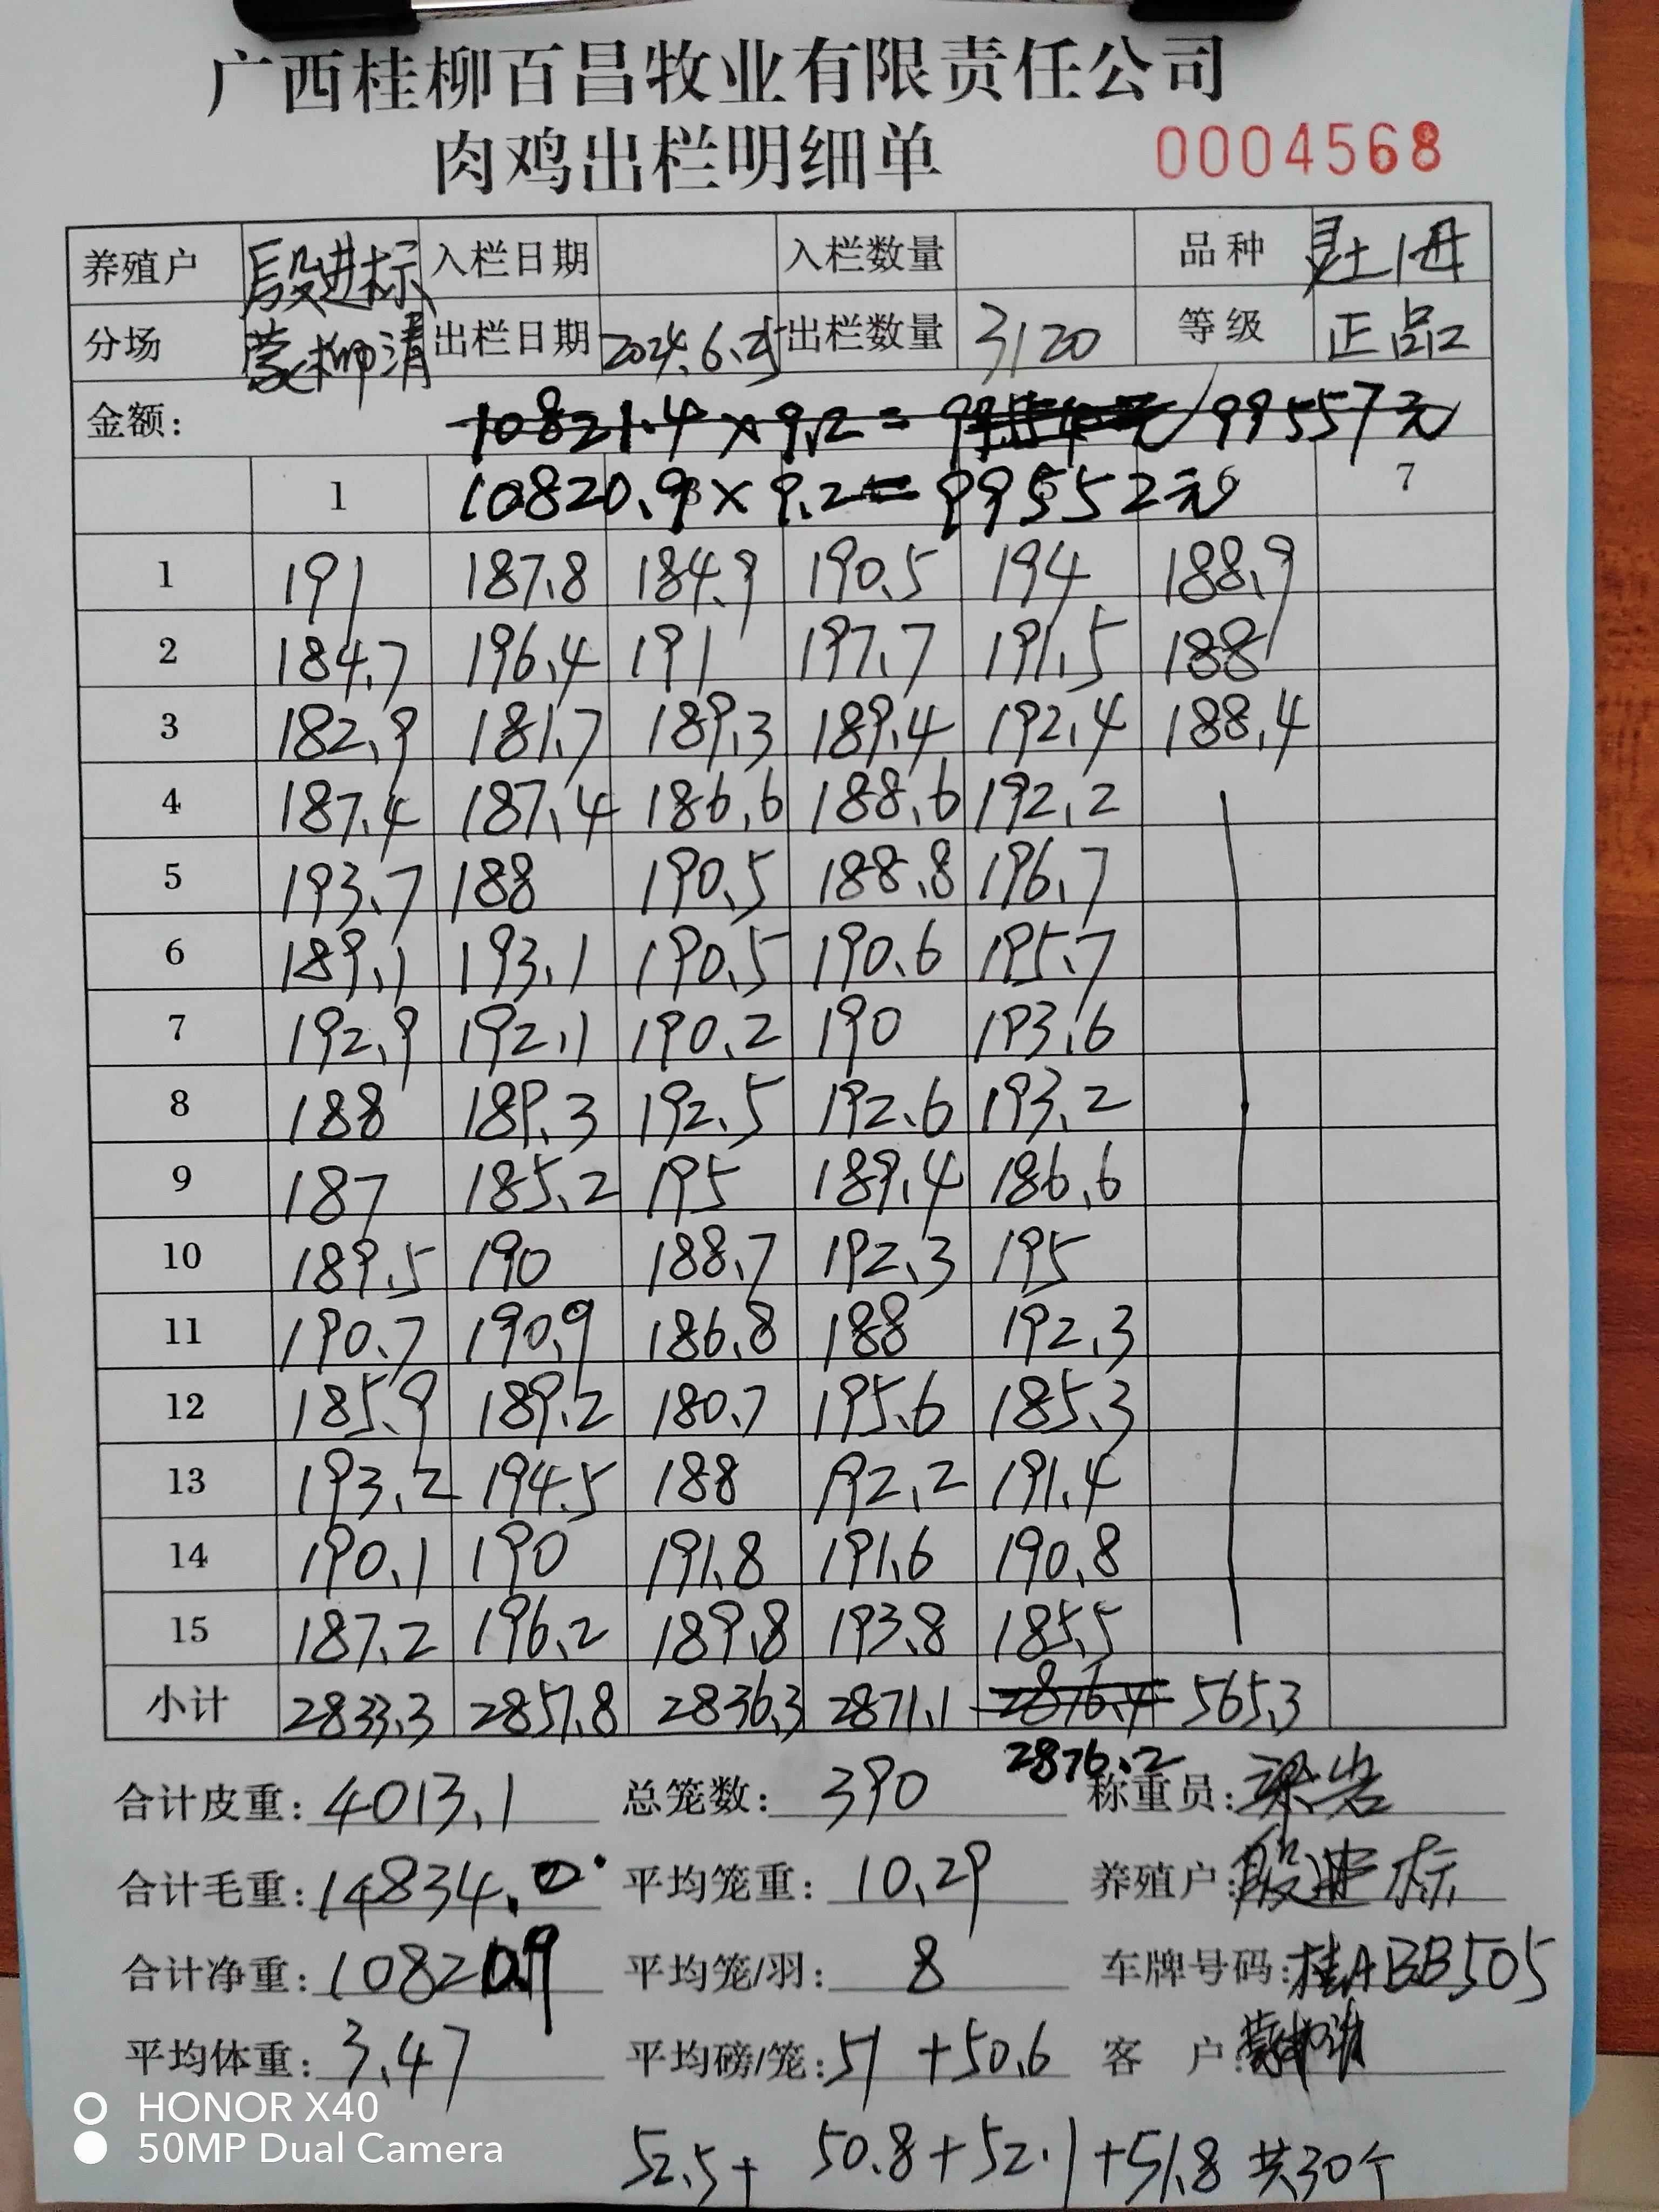 广西桂柳百昌牧业有限责任公司
肉鸡出栏明细单 0004568
养殖户 段进标 入栏日期 入栏数量 品种 灵土1母
分场 蒙柳清 出栏日期 2024.6.25 出栏数量 3120 等级 正品
金额: 10821.4×9.2= 99557元
10820.9×9.2=99552元
1 7
1 191 187.8 184.9 190.5 194 188.9
2 184.7 196.4 191 197.7 191.5 188
3 182.9 181.7 189.3 189.4 192.4 188.4
4 187.4 187.4 186.6 188.6 192.2
5 193.7 188 190.5 188.8 196.7
6 189.1 193.1 190.5 190.6 195.7
7 192.9 192.1 190.2 190 193.6
8 188 189.3 192.5 192.6 193.2
9 187 185.2 195 189.4 186.6
10 189.5 190 188.7 192.3 195
11 190.7 190.9 186.8 188 192.3
12 185.9 189.2 180.7 195.6 185.3
13 193.2 194.5 188 192.2 191.4
14 190.1 190 191.8 191.6 190.8
15 187.2 196.2 189.8 193.8 185.5
小计 2833.3 2857.8 2836.3 2871.1 2876.4 565.3
2876.2
合计皮重: 4013.1 总笼数: 390 称重员:
合计毛重: 14834.0 平均笼重: 10.29 养殖户: 段进标
合计净重: 10820.9 平均笼/羽: 8 车牌号码: 桂ABB505
平均体重: 3.47 平均磅/笼: 51+50.6 客 户: 蒙柳清
52.5+ 50.8+52.1+51.8 共30个
HONOR X40
50MP Dual Camera